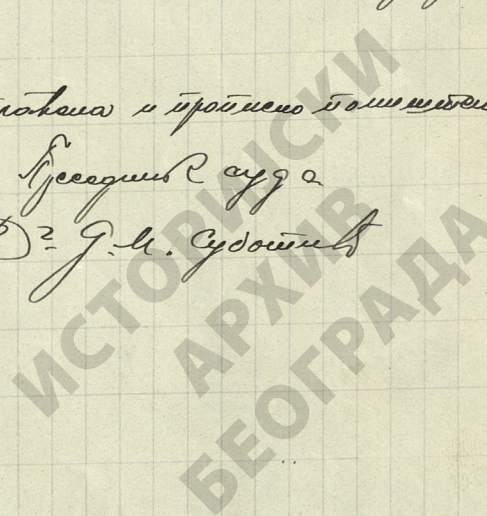 и прописно поништена
Председник суда
Др Д. М. Суботић
ИСТОРИЈСКИ
АРХИВ
БЕОГРАДА